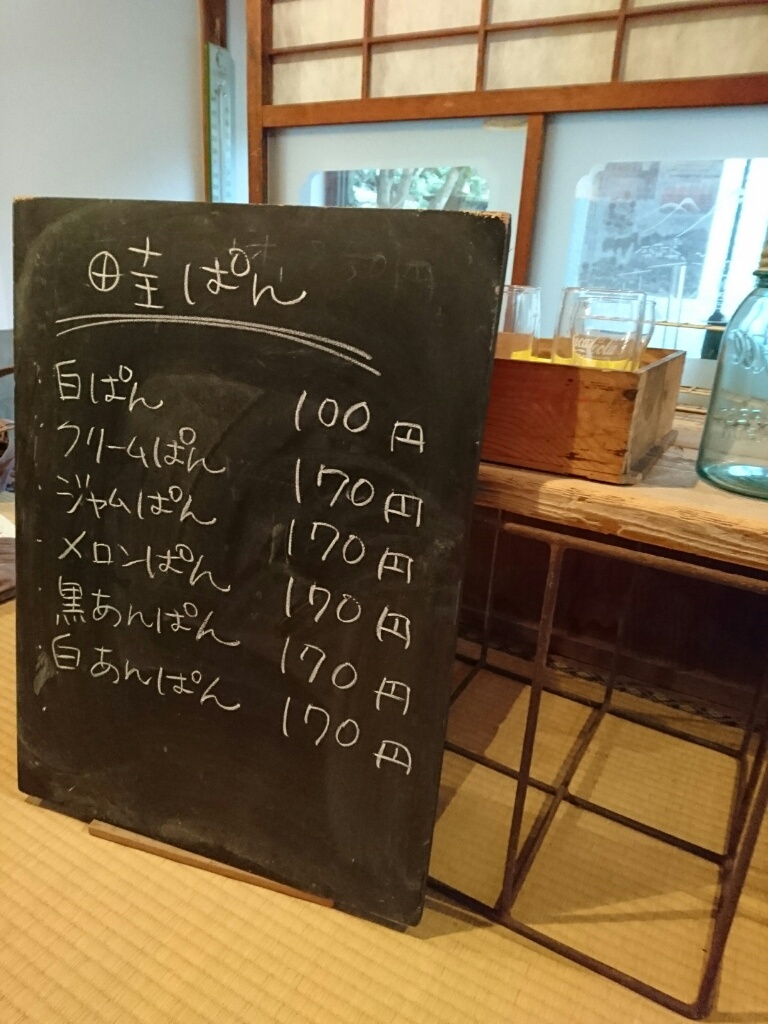 畦ぱん
白ぱん 100円
クリームぱん 170円
ジャムぱん 170円
メロンぱん 170円
黒あんぱん 170円
白あんぱん 170円
Coca-Cola